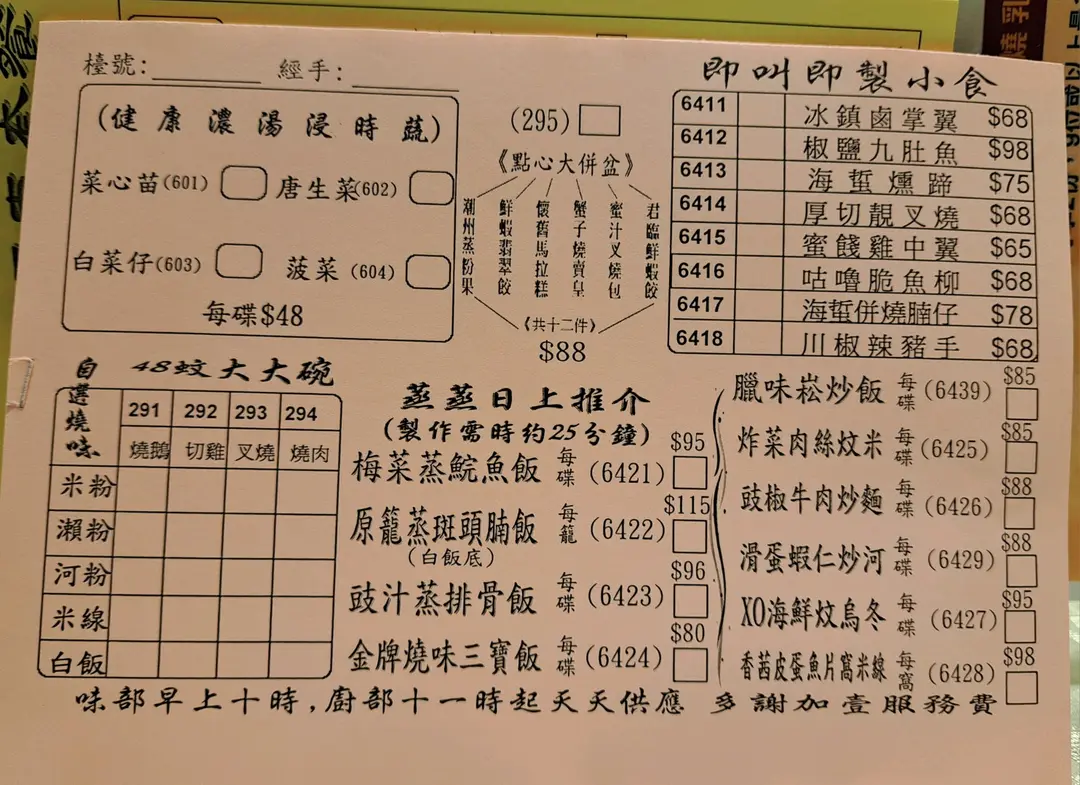 檯號:________ 經手:________
(健康濃湯浸時蔬)
菜心苗(601) 唐生菜(602)
白菜仔(603) 菠菜(604)
每碟$48
(295)
《點心大併盆》
潮州蒸粉果
鮮蝦翡翠餃
懷舊馬拉糕
蟹子燒賣皇
蜜汁叉燒包
君臨鮮蝦餃
《共十二件》
$88
即叫即製小食
6411 冰鎮鹵掌翼 $68
6412 椒鹽九肚魚 $98
6413 海蜇燻蹄 $75
6414 厚切靚叉燒 $68
6415 蜜餞雞中翼 $65
6416 咕嚕脆魚柳 $68
6417 海蜇併燒腩仔 $78
6418 川椒辣豬手 $68
自選燒味
48蚊大大碗
291 292 293 294
燒鵝 切雞 叉燒 燒肉
米粉
瀨粉
河粉
米線
白飯
蒸蒸日上推介
(製作需時約25分鐘)
梅菜蒸鯇魚飯 每碟 (6421) $95
原籠蒸斑頭腩飯 每籠 (6422) $115
(白飯底)
豉汁蒸排骨飯 每碟 (6423) $96
金牌燒味三寶飯 每碟 (6424) $80
臘味崧炒飯 每碟 (6439) $85
炸菜肉絲炆米 每碟 (6425) $85
豉椒牛肉炒麵 每碟 (6426) $88
滑蛋蝦仁炒河 每碟 (6429) $88
XO海鮮炆烏冬 每碟 (6427) $95
香茜皮蛋魚片窩米線 每窩 (6428) $98
味部早上十時,廚部十一時起天天供應 多謝加壹服務費